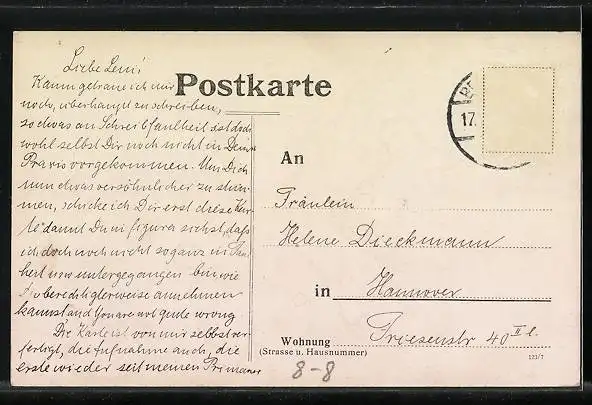 Liebe Leni!
Kaum getraue ich mir
noch, überhaupt zu schreiben,
so etwas an Schreibfaulheit ist doch
wohl selbst Dir noch nicht in Deiner
Praxis vorgekommen. Um Dich
nun etwas versöhnlicher zu stim-
men, schicke ich Dir erst diese Kar-
te damit Du in figura siehst, daß
ich doch noch nicht so ganz in
untergegangen bin wie
Du berechtigterweise annehmen
kannst and You are not quite wrong.
Die Karte ist von mir selbst ver-
fertigt, die Aufnahme auch, die
erste wieder seit meinen Primaner
Postkarte
17.
An
Fräulein
Helene Dieckmann
in Hannover
Wohnung Friesenstr 40 II l.
(Strasse u. Hausnummer)
123/7
8-8